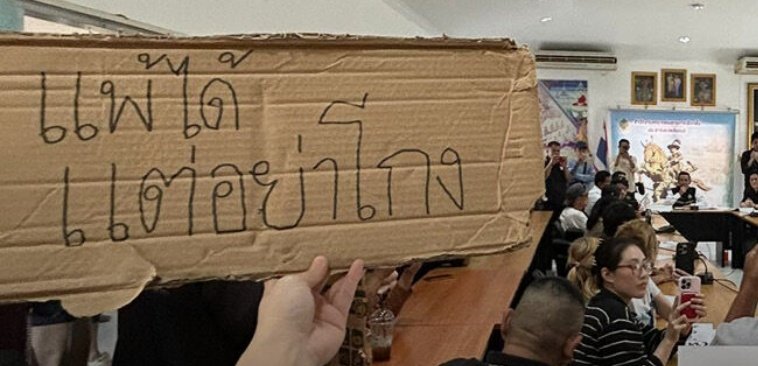 แพ้ได้
แต่อย่าโกง